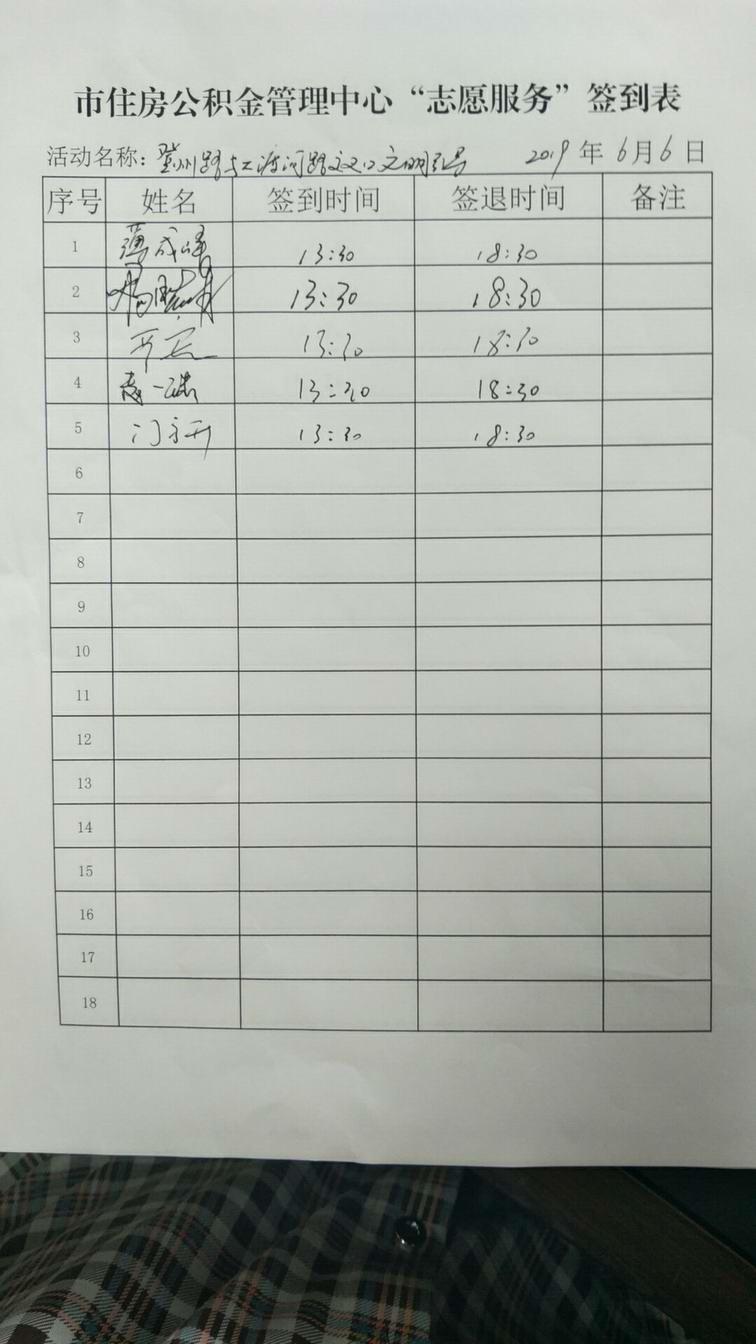 市住房公积金管理中心“志愿服务”签到表
活动名称： 路与 河路交叉口文明引导 2019 年 6月6 日
序号 姓名 签到时间 签退时间 备注
1 薄成峰 13:30 18:30
2 杨 13:30 18:30
3 13:30 18:30
4 一 13:30 18:30
5 门 开 13:30 18:30
6
7
8
9
10
11
12
13
14
15
16
17
18